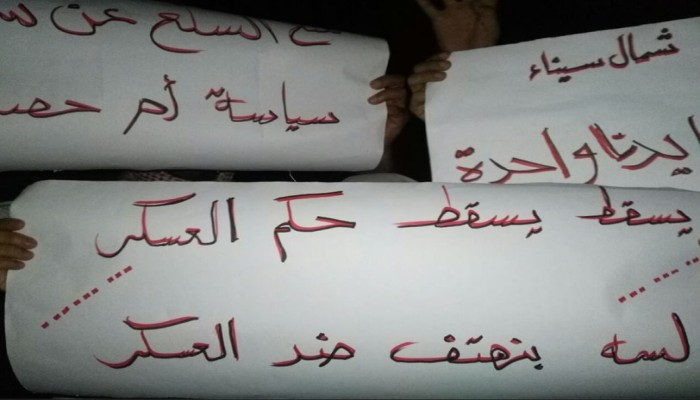 منع السلع عن
سياسة أم حصا
شمال سيناء
ايدنا واحدة
يسقط يسقط حكم العسكر
لسه بنهتف ضد العسكر